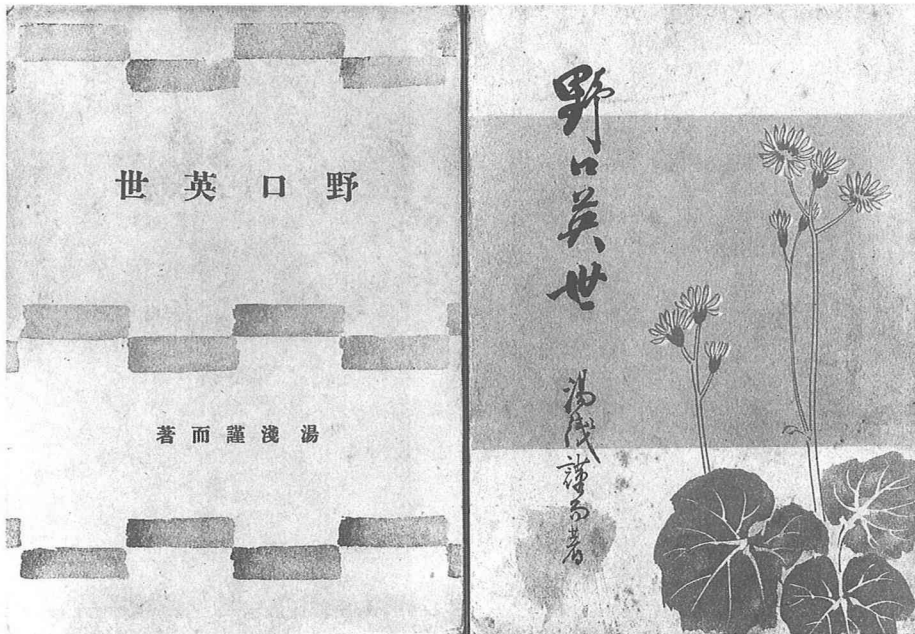 野口英世
湯淺謹而著
野口英世
湯淺謹而著